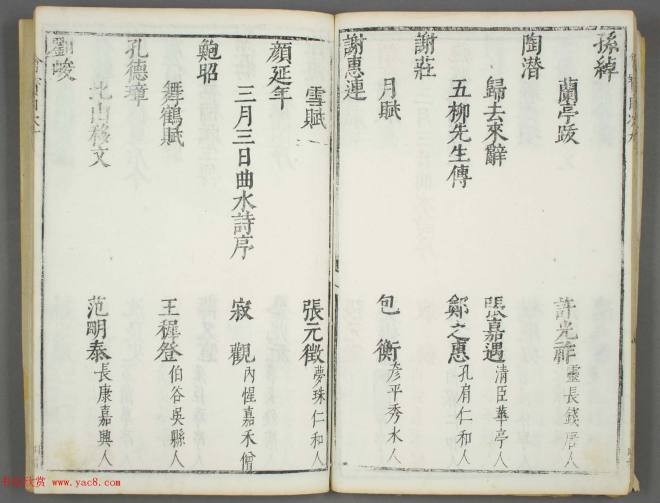 孫綽
蘭亭跋 許光祚 靈長錢唐人
陶潛
歸去來辭 張嘉遇 清臣華亭人
五柳先生傳 鄭之惠 孔肩仁和人
謝莊
月賦 包衡 彥平秀水人
謝惠連
雪賦 張元徵 夢珠仁和人
顏延年
三月三日曲水詩序 寂觀 內惺嘉禾僧
鮑照
舞鶴賦 王穉登 伯谷吳縣人
孔德璋
北山移文 范明泰 長康嘉興人
劉峻
书法欣赏 www.yac8.com